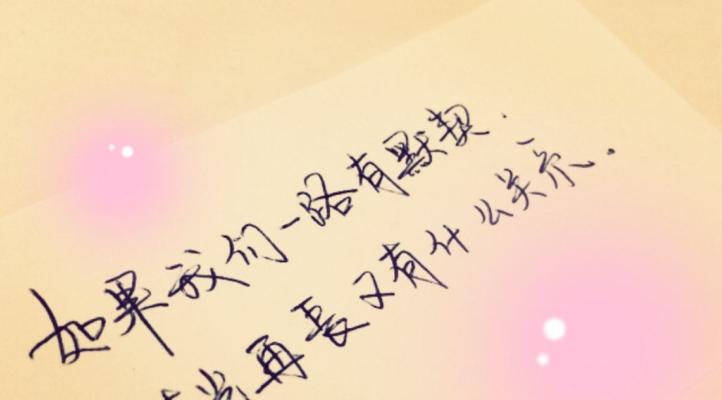 如果我们一路有默契.
再长又有什么关系.